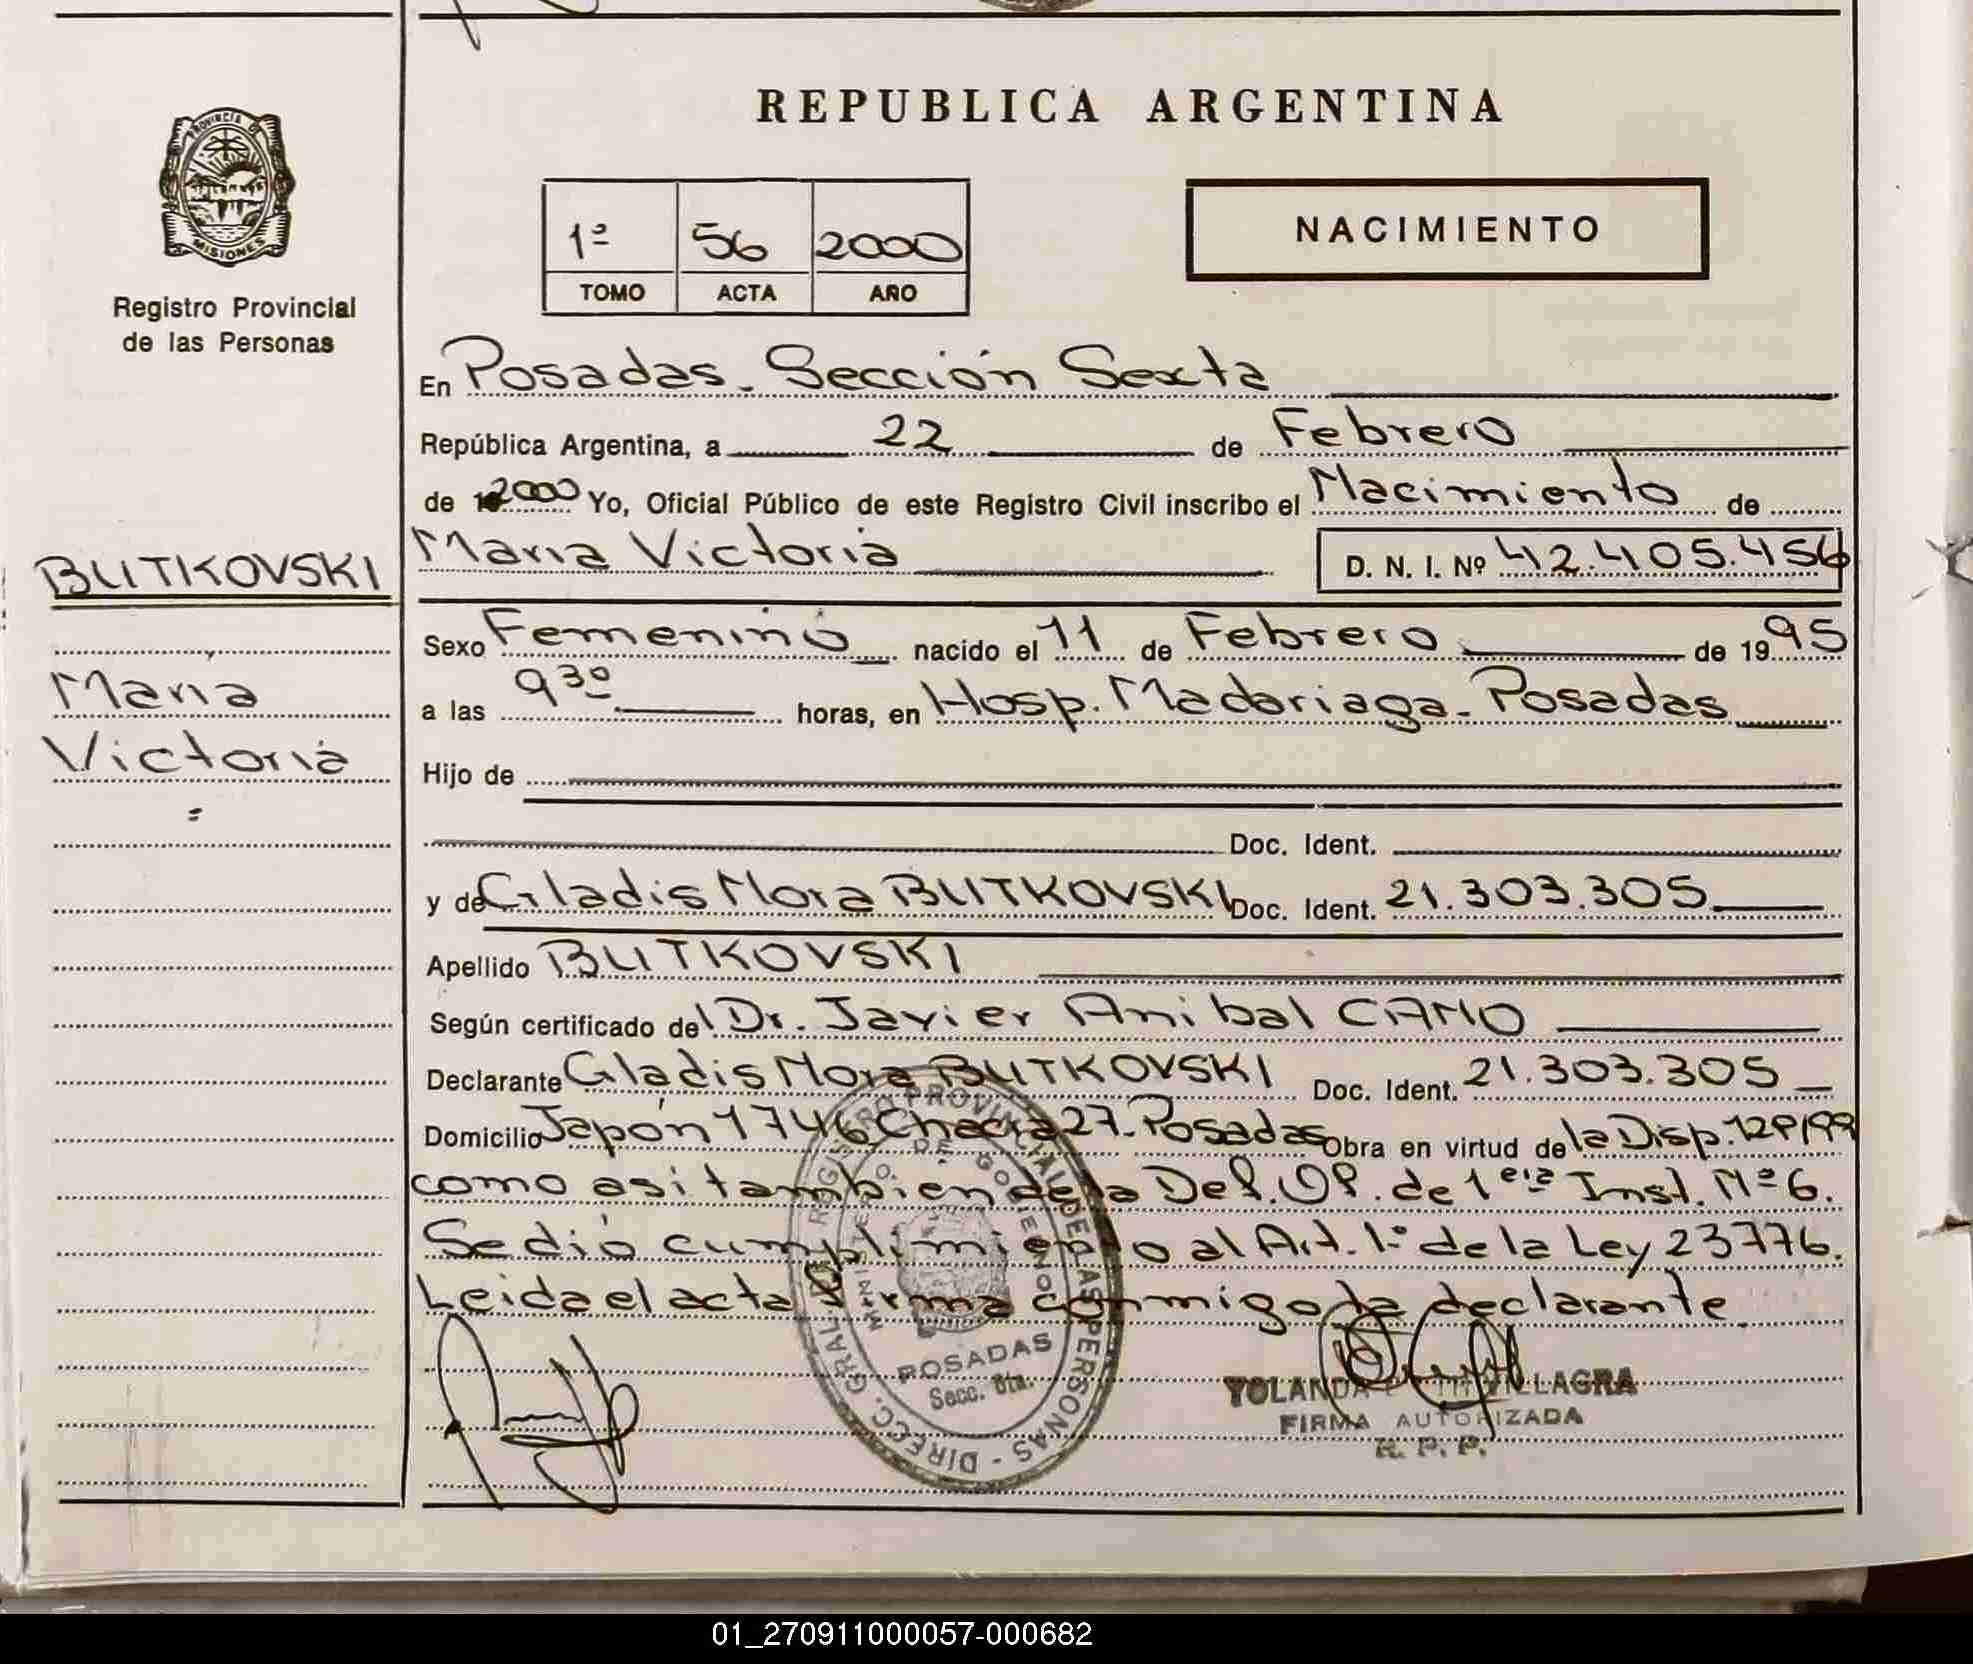 REPUBLICA ARGENTINA
PROVINCIA DE
MISIONES
Registro Provincial
de las Personas
1º 56 2000
TOMO ACTA AÑO
NACIMIENTO
En Posadas. Sección Sexta
República Argentina, a 22 de Febrero
de 2000 Yo, Oficial Público de este Registro Civil inscribo el Nacimiento de
BUTKOVSKI
María Victoria D. N. I. Nº 42.405.456
Sexo Femenino nacido el 11 de Febrero de 1995
María
a las 9³⁰ horas, en Hosp. Madariaga - Posadas
Victoria
Hijo de
Doc. Ident.
y de Gladis Nora BUTKOVSKI Doc. Ident. 21.303.305
Apellido BUTKOVSKI
Según certificado del Dr. Javier Anibal CANO
Declarante Gladis Nora BUTKOVSKI Doc. Ident. 21.303.305
Domicilio Japón 1746 Chacra 27. Posadas Obra en virtud de la Disp.
como asi tambien de la Def. Of. de 1era Inst. Nº 6.
Se dió cumplimiento al Art. 1º de la Ley 23776.
Leida el acta firma conmigo la declarante.
DIREC. GRAL. REGISTRO PROVINCIAL DE LAS PERSONAS
MINISTERIO DE GOBIERNO
POSADAS
Secc. 6ta.
YOLANDA VILLAGRA
FIRMA AUTORIZADA
R. P. P.
01_270911000057-000682